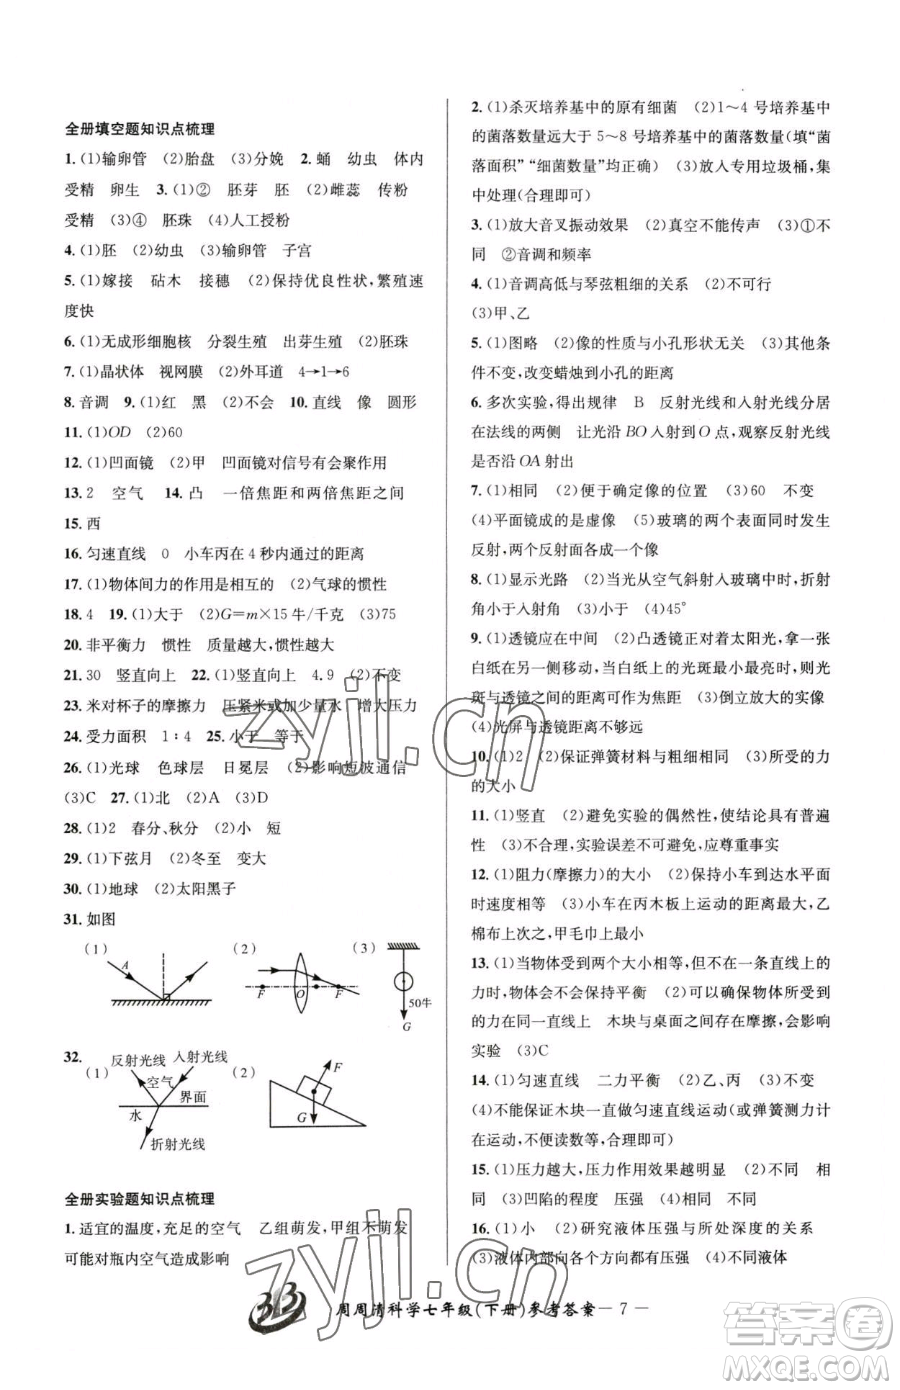 全册填空题知识点梳理
1.(1)输卵管 (2)胎盘 (3)分娩 2.蛹 幼虫 体内
受精 卵生 3.(1)② 胚芽 胚 (2)雌蕊 传粉
受精 (3)④ 胚珠 (4)人工授粉
4.(1)胚 (2)幼虫 (3)输卵管 子宫
5.(1)嫁接 砧木 接穗 (2)保持优良性状,繁殖速
度快
6.(1)无成形细胞核 分裂生殖 出芽生殖 (2)胚珠
7.(1)晶状体 视网膜 (2)外耳道 4→1→6
8.音调 9.(1)红 黑 (2)不会 10.直线 像 圆形
11.(1)OD (2)60
12.(1)凹面镜 (2)甲 凹面镜对信号有会聚作用
13.2 空气 14.凸 一倍焦距和两倍焦距之间
15.西
16.匀速直线 0 小车丙在4秒内通过的距离
17.(1)物体间力的作用是相互的 (2)气球的惯性
18.4 19.(1)大于 (2)G=m×15牛/千克 (3)75
20.非平衡力 惯性 质量越大,惯性越大
21.30 竖直向上 22.(1)竖直向上 4.9 (2)不变
23.米对杯子的摩擦力 压紧米或加少量水 增大压力
24.受力面积 1∶4 25.小于 等于
26.(1)光球 色球层 日冕层 (2)影响短波通信
(3)C 27.(1)北 (2)A (3)D
28.(1)2 春分、秋分 (2)小 短
29.(1)下弦月 (2)冬至 变大
30.(1)地球 (2)太阳黑子
31.如图
(1) (2) (3)
A
F O F
50牛
G
32.
(1) 反射光线 入射光线
空气 界面
水
折射光线
(2)
F
G
全册实验题知识点梳理
1.适宜的温度,充足的空气 乙组萌发,甲组不萌发
可能对瓶内空气造成影响
2.(1)杀灭培养基中的原有细菌 (2)1～4号培养基中
的菌落数量远大于5～8号培养基中的菌落数量(填“菌
落面积”“细菌数量”均正确) (3)放入专用垃圾桶,集
中处理(合理即可)
3.(1)放大音叉振动效果 (2)真空不能传声 (3)①不
同 ②音调和频率
4.(1)音调高低与琴弦粗细的关系 (2)不可行
(3)甲、乙
5.(1)图略 (2)像的性质与小孔形状无关 (3)其他条
件不变,改变蜡烛到小孔的距离
6.多次实验,得出规律 B 反射光线和入射光线分居
在法线的两侧 让光沿BO入射到O点,观察反射光线
是否沿OA射出
7.(1)相同 (2)便于确定像的位置 (3)60 不变
(4)平面镜成的是虚像 (5)玻璃的两个表面同时发生
反射,两个表面各成一个像
8.(1)显示光路 (2)当光从空气斜射入玻璃中时,折射
角小于入射角 (3)小于 (4)45°
9.(1)透镜应在中间 (2)凸透镜正对着太阳光,拿一张
白纸在另一侧移动,当白纸上的光斑最小最亮时,则光
斑与透镜之间的距离可作为焦距 (3)倒立放大的实像
(4)光屏与透镜距离不够远
10.(1)2 (2)保证弹簧材料与粗细相同 (3)所受的力
的大小
11.(1)竖直 (2)避免实验的偶然性,使结论具有普遍
性 (3)不合理,实验误差不可避免,应尊重事实
12.(1)阻力(摩擦力) (2)保持小车到达水平面
时速度相等 (3)小车在丙木板上运动的距离大,乙
棉布上小于丙,甲毛巾上最小
13.(1)当物体受到两个大小相等,但不在一条直线上的
力时,物体不会保持平衡 (2)可以确保物体所受的力
在同一直线上 木块与桌面之间存在摩擦,会影响
实验 (3)C
14.(1)匀速直线 二力平衡 (2)乙、丙 (3)不变
(4)不能保证木块一直做匀速直线运动(或弹簧测力计
在运动,不便读数等,合理即可)
15.(1)压力越大,压力作用效果越明显 (2)不同 相
同 (3)凹陷的程度 压强 (4)压强
16.(1)小 (2)研究液体压强与所处深度的关系
(3)液体内部向各个方向都有压强 (4)不同液体
周周清科学七年级(下册)参考答案—7—
zyjl.cn
zyjl.cn
答案圈
MXQE.COM